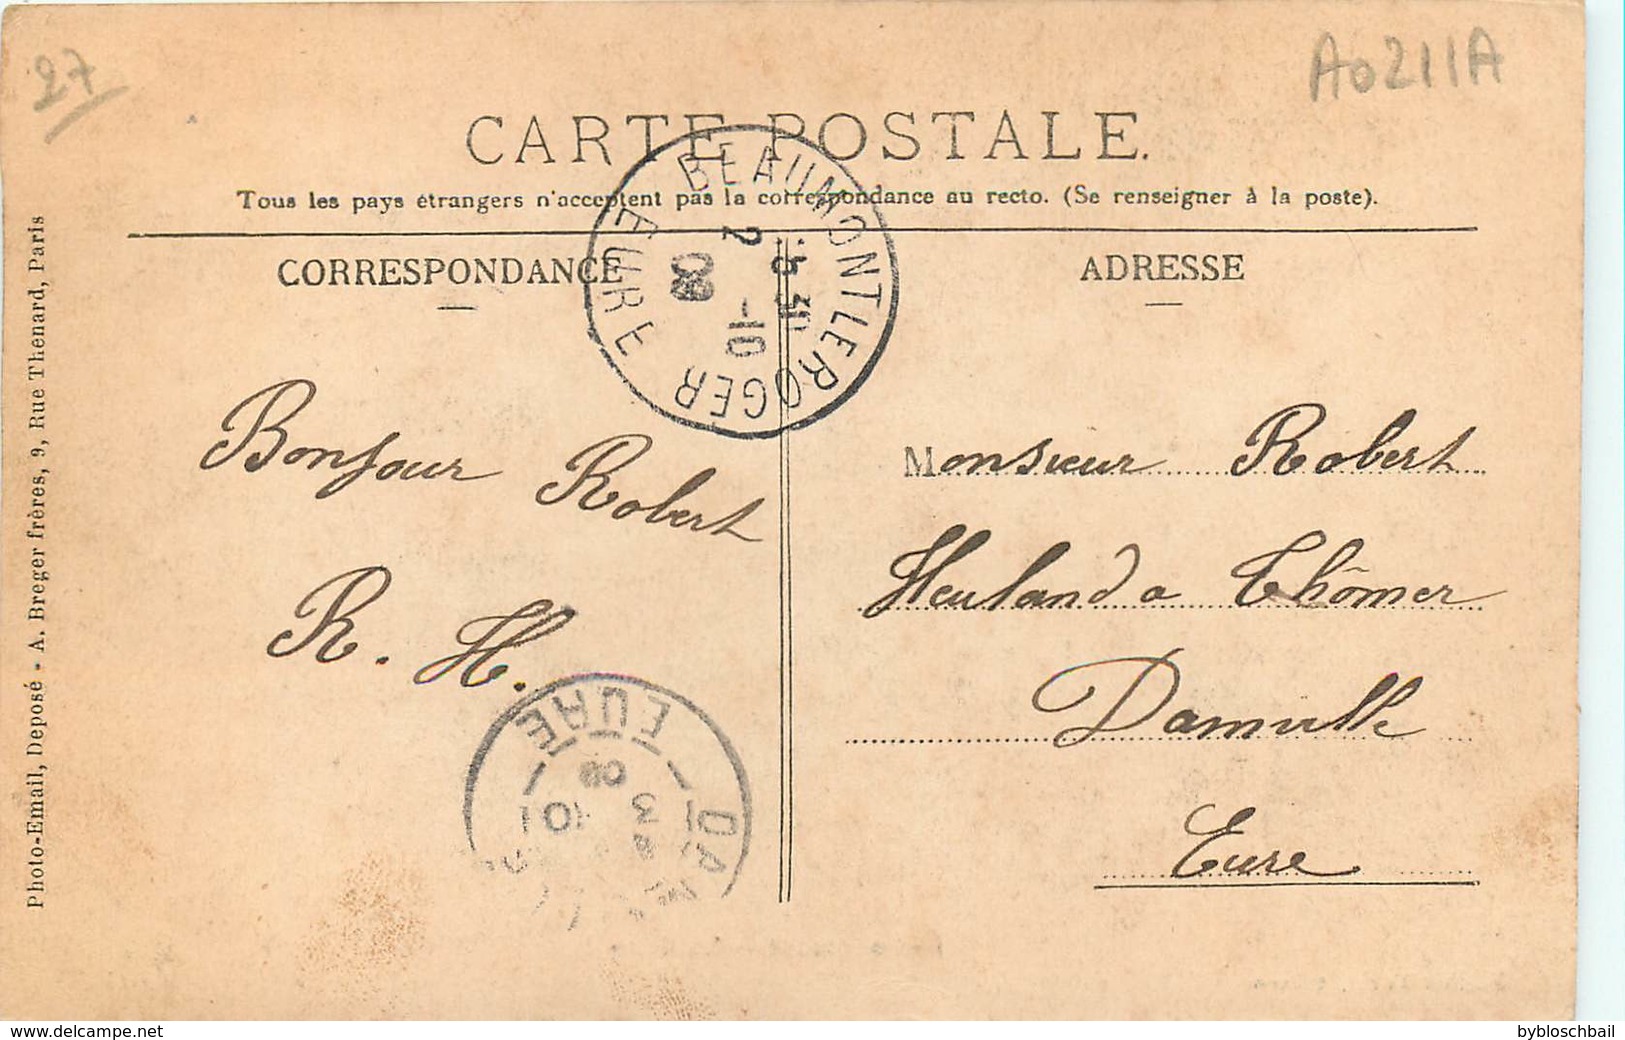 27
A0211A
CARTE POSTALE.
Tous les pays étrangers n'acceptent pas la correspondance au recto. (Se renseigner à la poste).
CORRESPONDANCE
ADRESSE
BEAUMONT LE ROGER
EURE
2 -10
08
Bonjour Robert
R. H.
Monsieur Robert
Heuland a Thômer
Damville
Eure
EURE
3
10
08
Photo-Email, Deposé - A. Breger frères, 9, Rue Thenard, Paris
www.delcampe.net
bybloschbail